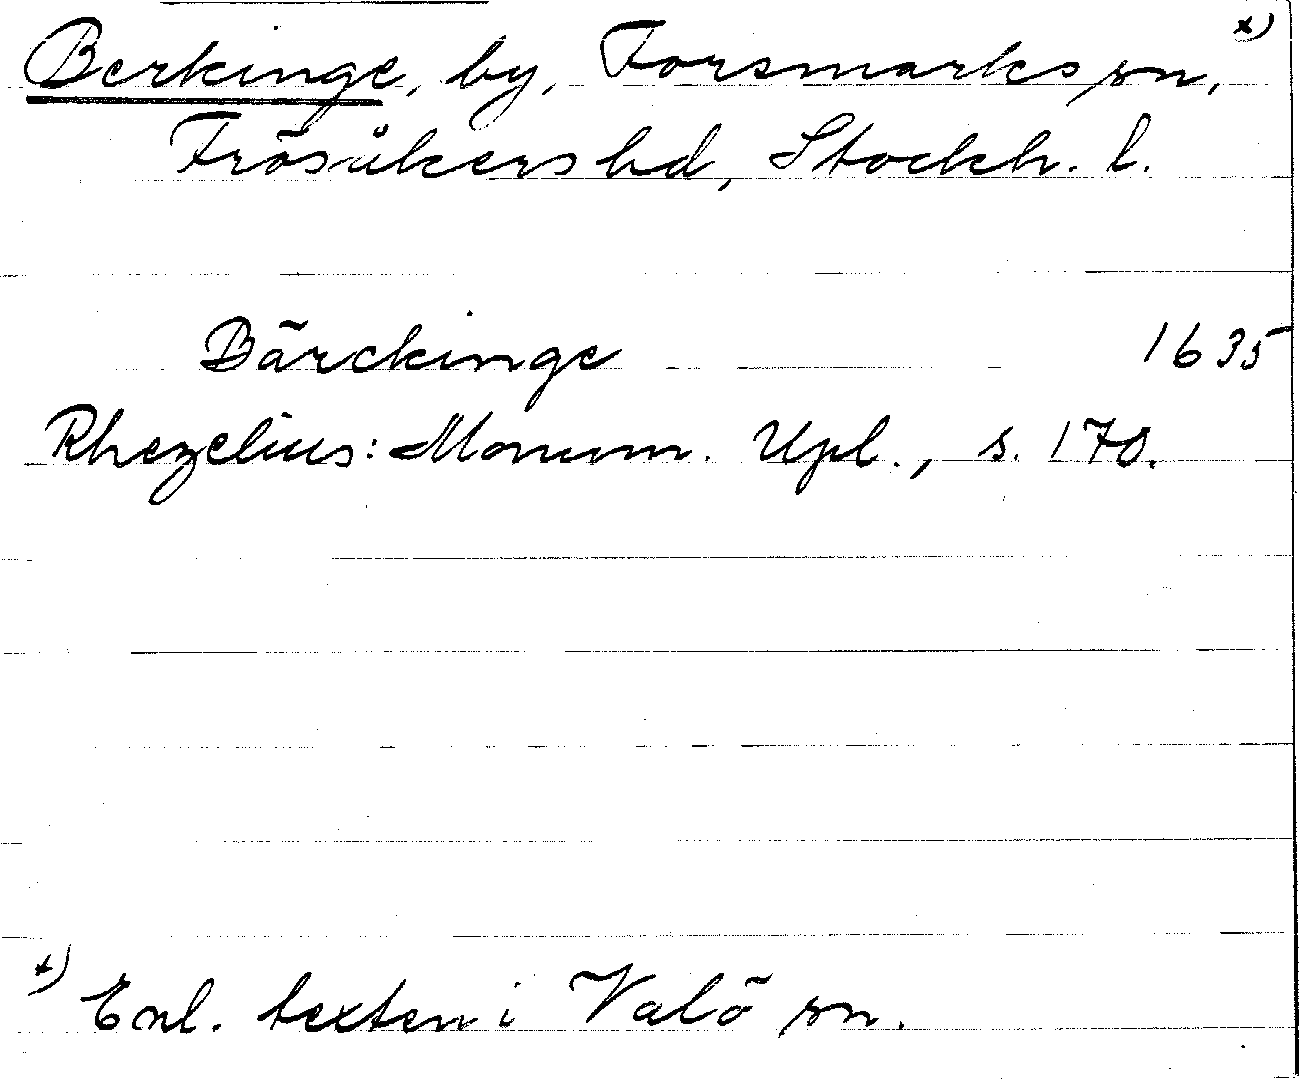 Berkinge, by, Forsmarks sn, x)
Frösåkers hd, Stockh. l.
Bärckinge 1635
Rhezelius: Monum. Upl., s. 170.
x) Enl. texten i Valö sn.